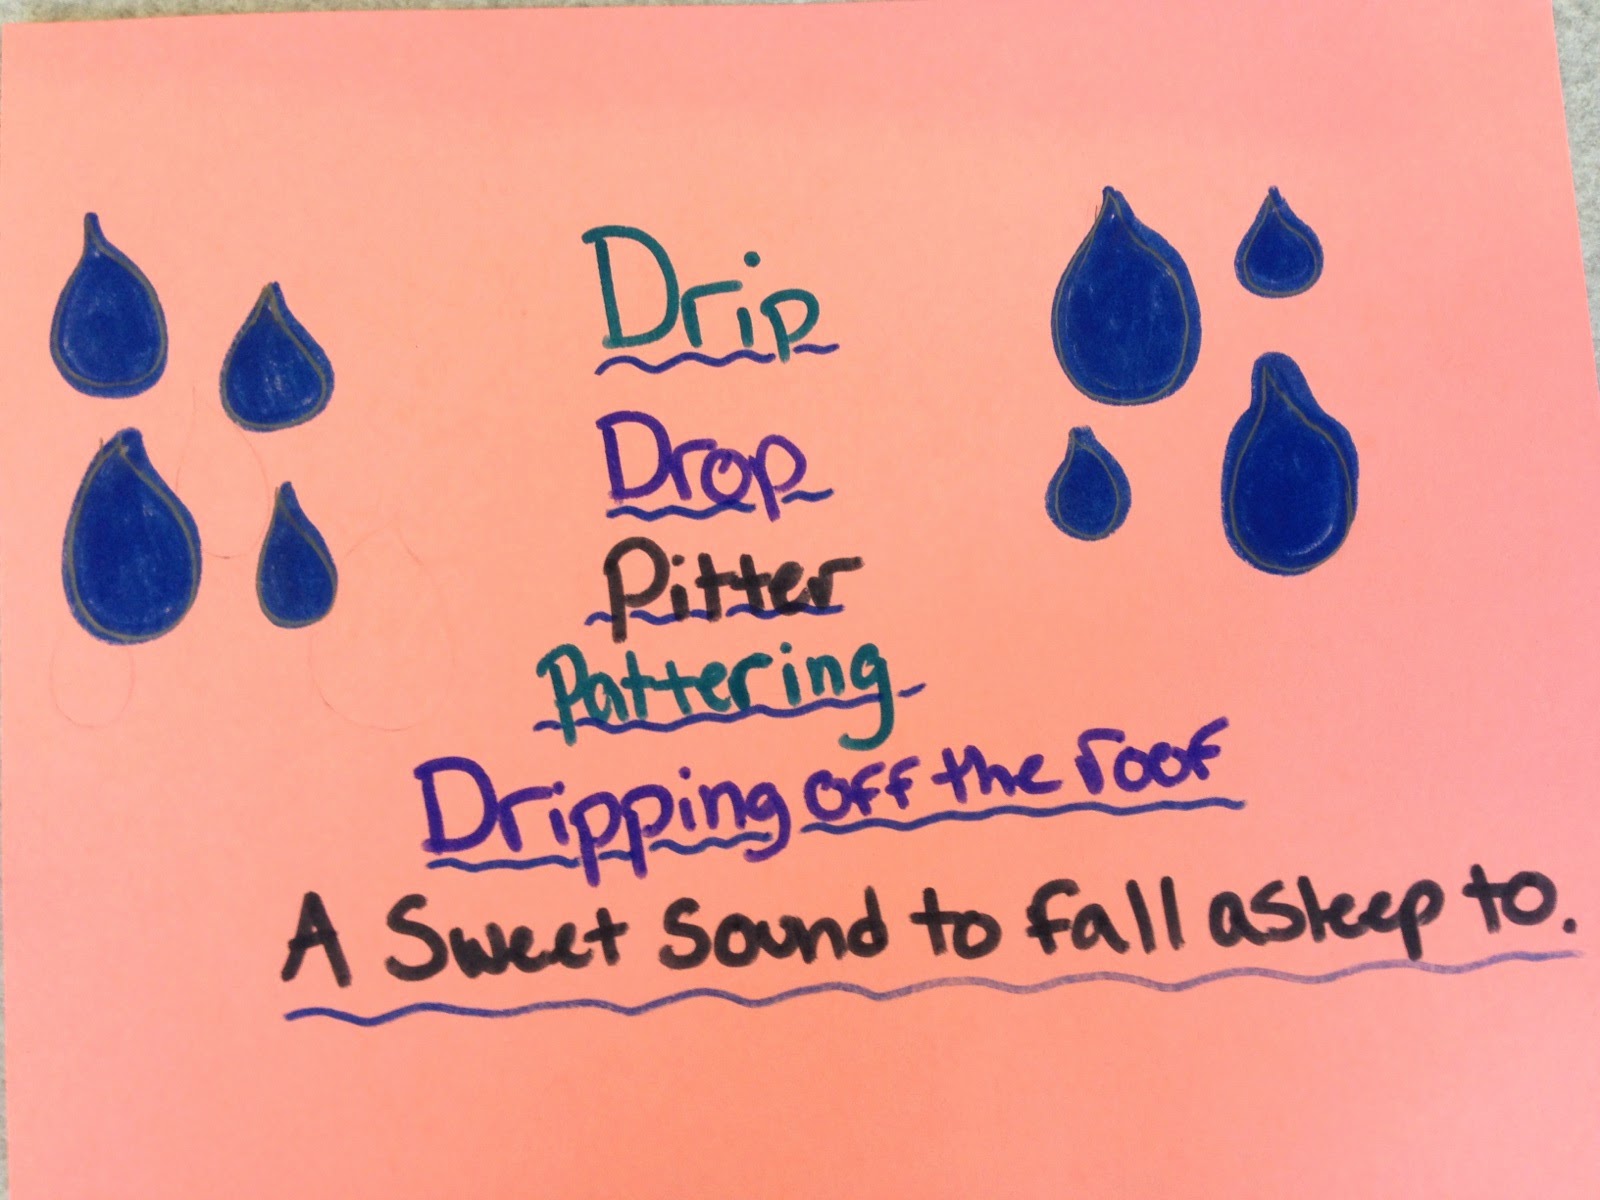 Drip
Drop
Pitter
Pattering
Dripping off the roof
A Sweet Sound to fall asleep to.